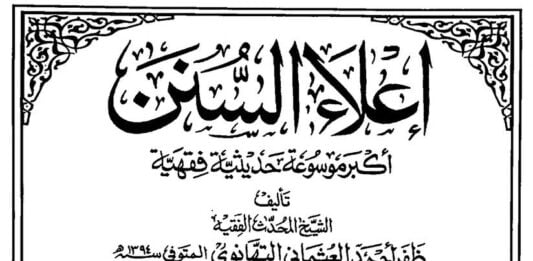 إعْلَاءُ السُّنَن
أكبر موسوعة حديثية فقهية
تأليف
الشيخ المحدث الفقيه
ظفر أحمد العثماني التهانوي المتوفى سنة ١٣٩٤ هـ